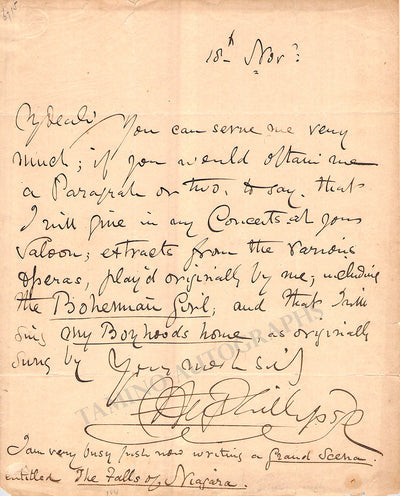 18th Novr
My dear Sir
You can serve me very
much; if you would obtain me
a Paragrah or two, to say, that
I will give in my Concerts at your
Saloon; extracts from the various
operas, play'd originally by me, including
the Bohemian Girl, and that I will
sing my Boyhoods home as originally
sung by
Your most sinc
H Phillips
I am very busy just now writing a Grand Scena.
entitled The Falls of Niagara.
TAMINO AUTOGRAPHS